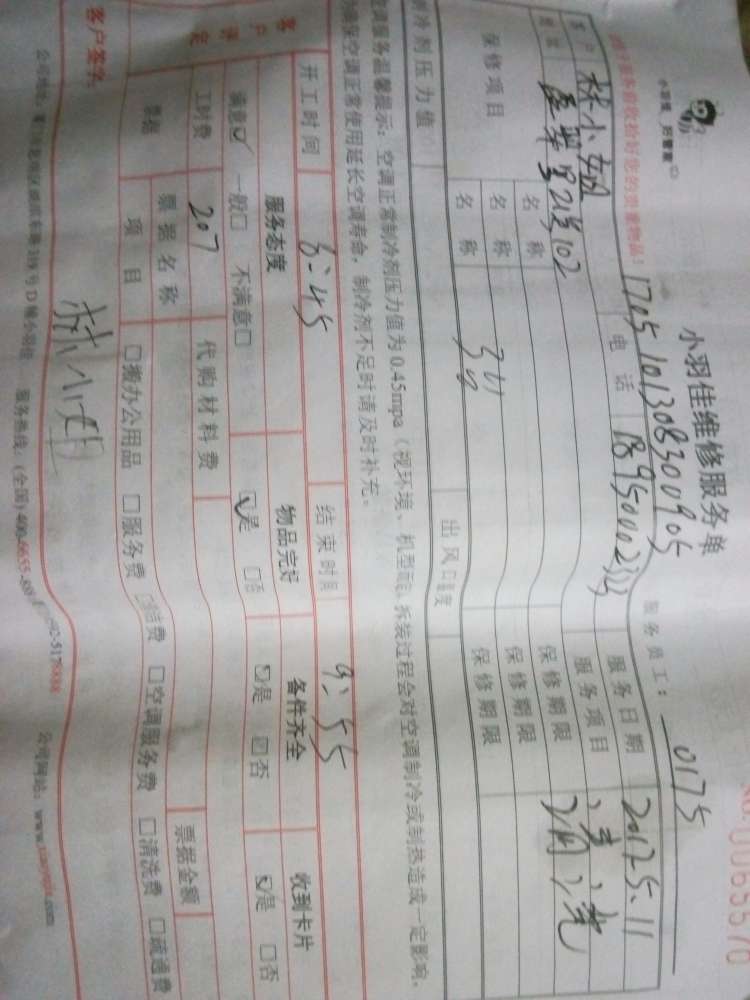 小羽佳 好管家
小羽佳维修服务单
1705101308300905
服务员工: 0175
客户 林小姐
电话
服务日期 2017.5.11
服务项目 清洗
保修项目
名称
保修期限
名称
保修期限
名称
保修期限
制冷剂压力值
出风口温度
空调服务温馨提示:空调正常制冷剂压力值为0.45mpa(视环境、机型
拆装过程会对空调制冷或制热造成一定影响,
确保空调正常使用延长空调寿命,制冷剂不足时请及时补充。
开工时间
结束时间 9:55
客户评定
服务态度
物品完好
备件齐全
收到卡片
满意☑ 一般☐ 不满意☐
☑是 ☐否
☑是 ☐否
☑是 ☐否
工时费 207
代购材料费
票据
票据名称
票据金额
项目
☐搬办公用品 ☐服务费
☐空调服务费 ☐清洗费 ☐疏通费
客户签字: 林小姐
公司地址:
服务热线:(全国)400-6655-
公司网站:www.